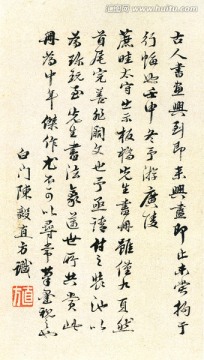 古人書畫興到即來興盡即止未嘗拘于
行幅也壬申冬予游廣陵
蔗畦太守出示板橋先生書冊雖僅九頁然
首尾完善無闕文也予亟請付之裝池以
為珍玩至先生書法氣逸世所共賞此
冊為中年傑作尤不可以尋常筆墨視之
白門陳毅直方識